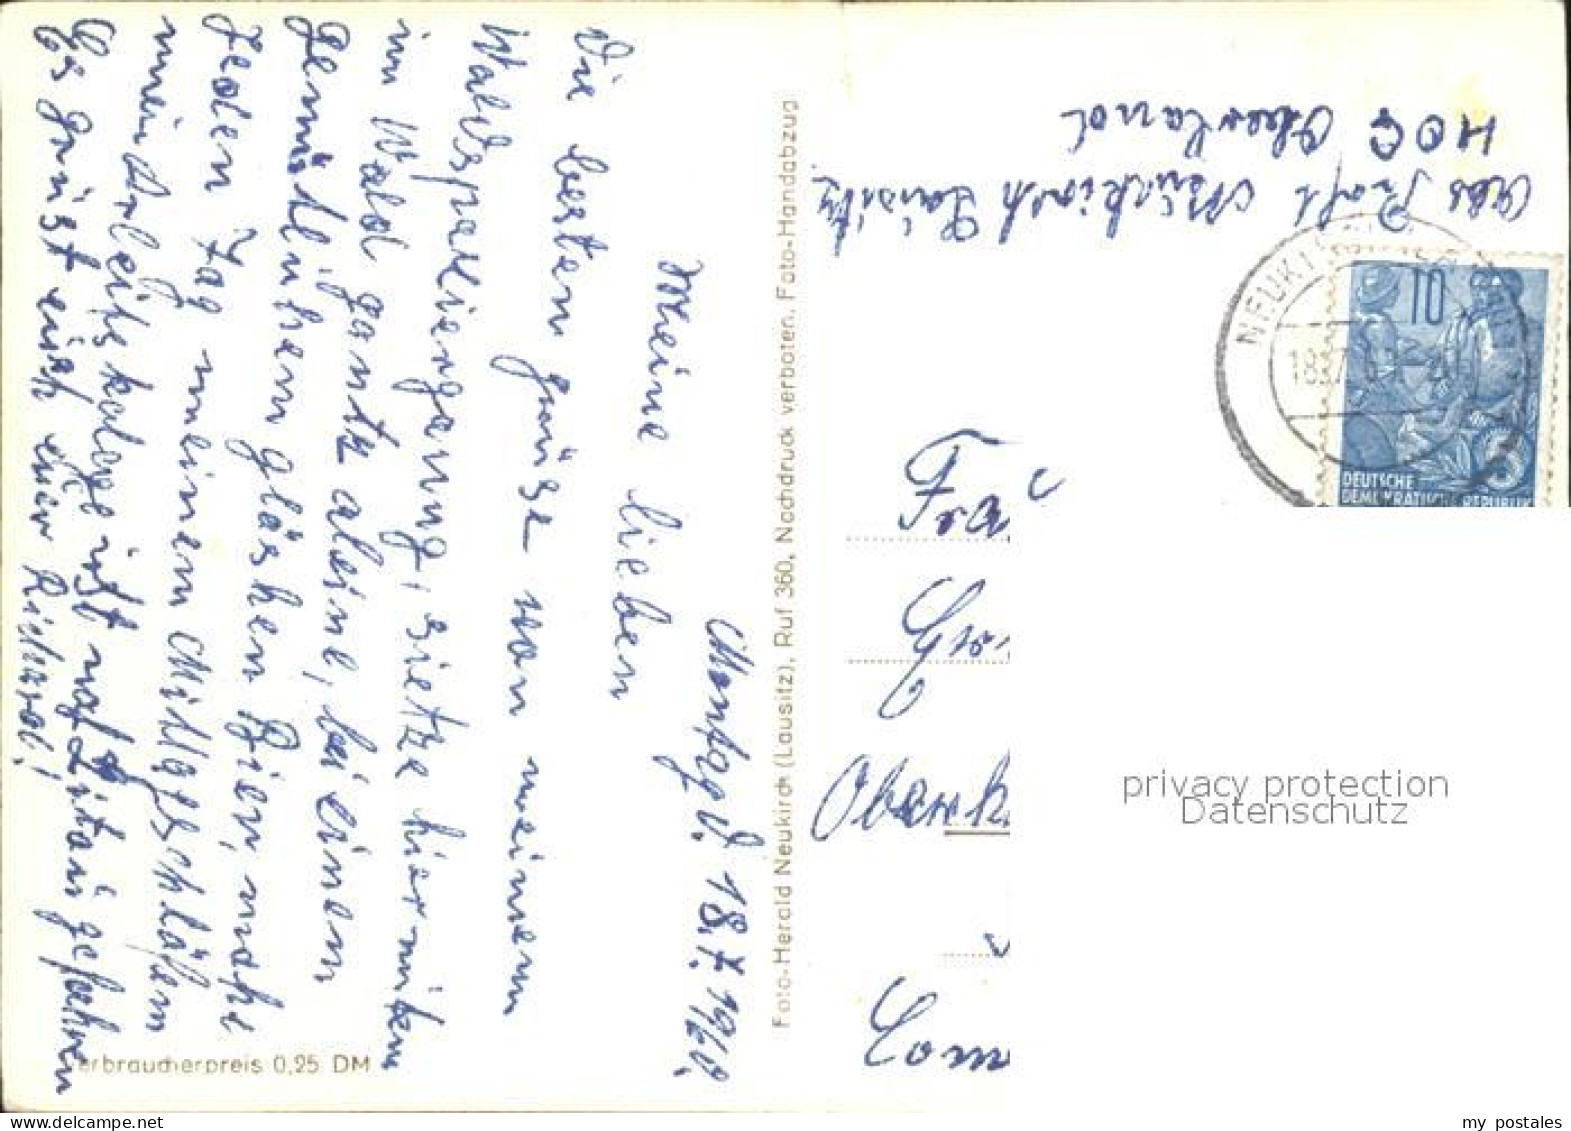 Montag d. 18.7.1960.
Meine lieben
Die besten grüse von meinem
Waldspaziergang, sietze hier miten
im Wald gantz aleine, bei einem
gemütlichem gläschen Bier, mache
jeden Tag meinem Mittagschläfem
mein Arbeitskolege ist nach Zitau gefahren
Es grüst euch euer Richard!
Verbraucherpreis 0,25 DM
Foto-Herald Neukirch (Lausitz), Ruf 360, Nachdruck verboten, Foto-Handabzug
Abs Neukirch Lausitz
HOG Oberland
10
DEUTSCHE
DEMOKRATISCHE REPUBLIK
privacy protection
Datenschutz
my postales